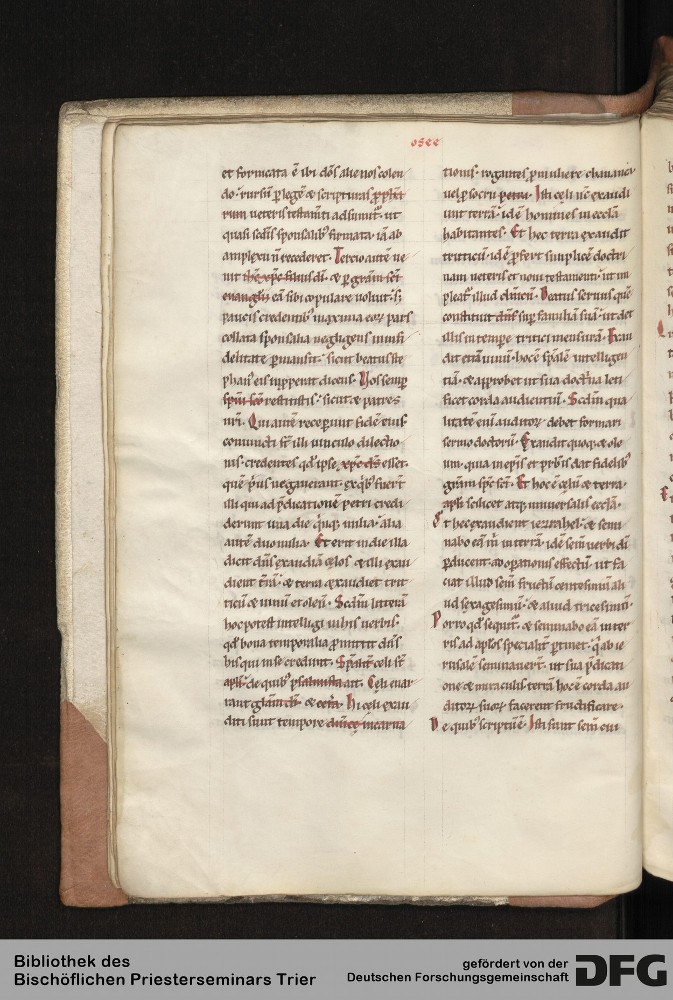 osee
et fornicata ē ibi dōs alienos colen
do· rursū p legē & scripturas pphā
rum ueteris testam̄ti adsumit᷑· ut
quasi sedis sponsalib; firmata· iā ab
amplexu n̄ recederet· Tercio autē ue
nit ihc xpc filius di· & p grām sc̄i
euanglii eā sibi copulare uoluit· s;
paucis credentib; maxima eoꝝ pars
collata sponsalia negligens in infi
delitate pmansit· sicut beatus ste
phan; eis inpperat dicens· Vos semp
spm scm restitistis· sicut & patres
uri· Qui autē recepunt fidē eius
coniuncti st̄ illi uinculo dilectio
nis· credentes qd ipse xpc ds esset·
quē p̄us negauerant· ex qb; fuert̄
illi qui ad p̄dicationē petri credi
derunt una die q̄nq; milia· alia
autē duo milia· Et erit in die illa
dicit dn̄s exaudiā celos· & illi exau
dient tr̄ā· & terra exaudiet trit
ticū & uinū et oleū· Scdm litterā
hoc potest intelligi uilibus uerbis·
qd bona temporalia pmittit dn̄s
his qui in se credunt· Spalit celi st̄
apli· de quib; psalmista ait· Celi enar
rant gl̄am di· & cetera· Hi celi exau
diti sunt tempore dnice incarna
tionis· rogantes p muliere chananea
uel p socru petri· Isti celi nc̄ exaudi
unt terrā· idē homines in eccl̄a
habitantes· Et hec terra exaudit
triticū· idē pfert simplicē doctri
nam ueteris et noui testamenti· ut im
pleat᷑ illud dn̄icū· Beatus seruus quē
constituit dn̄s sup familiā suā· ut det
illis in tempe tritici mensurā· Exau
dit etiā uinū· hoc ē spalē intelligen
tiā· & approbet ut sua doctrina leti
ficet corda audientiū· Scdm qua
litatē enī auditoꝝ debet formari
sermo doctorū· Exaudit quoq; & ole
um· quia in epis et prbris dat fidelib;
grām spc sc̄i· Et hoc ē celū & terra
apli scilicet atq; uniuersalis eccl̄a·
Et hec exaudient iezrahel· & semi
nabo eā m̄ in terrā· idē semē uerbi di
pducent ad opationis effectū· ut fa
ciat illud semē fructū centesimū· ali
ud sexagesimū· & aliud tricesimū·
Porro qd sequit᷑ & seminabo eā in ter
ris ad aplos specialit ptinet· q̄ ab ie
rusalē seminauert̄· ut sua p̄dicati
one & miraculis terrā hoc ē corda au
ditoꝝ suoꝝ facerent fructificare·
De quib; scriptū ē· Isti sunt semē cui
Bibliothek des
Bischöflichen Priesterseminars Trier
gefördert von der
Deutschen Forschungsgemeinschaft
DFG